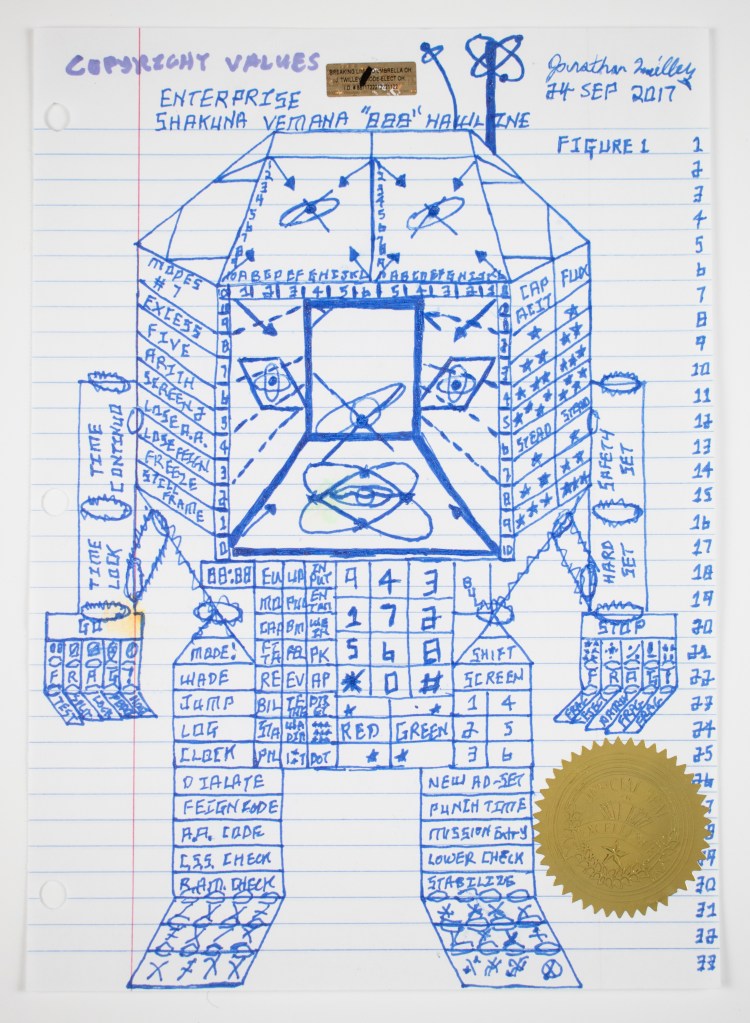 COPYRIGHT VALUES
ENTERPRISE
SHAKUNA VEMANA "888" HAWLTINE
24 SEP 2017
FIGURE 1
1
2
3
4
5
6
7
8
9
10
11
12
13
14
15
16
17
18
19
20
21
22
23
24
25
30
31
32
33
ABCDEFGHIJKL
ABCDEFGHIJKL
1 2 3 4 5 6 5 4 3 2 1
MODES
# 7
EXCESS
FIVE
ARITH
SCREEN J
LOSE A.A.
LOSE FEIGN
FREEZE
STILL
FRAME
CAP
ACIT
FLUX
STEAD STEAD
TIME
CONTINUO
TIME
LOCK
SAFETY
SET
HARD
SET
GO
STOP
F R A G !
F R A G !
TEST
88:88
9 4 3
1 7 2
5 6 8
* 0 #
RED GREEN
MODE!
WADE
JUMP
LOG
CLOCK
RE EV AP
PK
DOT
SHIFT
SCREEN
1 4
2 5
3 6
DIALATE
FEIGN CODE
A.A. CODE
C.S.S. CHECK
B.A.M. CHECK
NEW AD-SET
PUNCH TIME
MISSION Entry
LOWER CHECK
STABILIZE